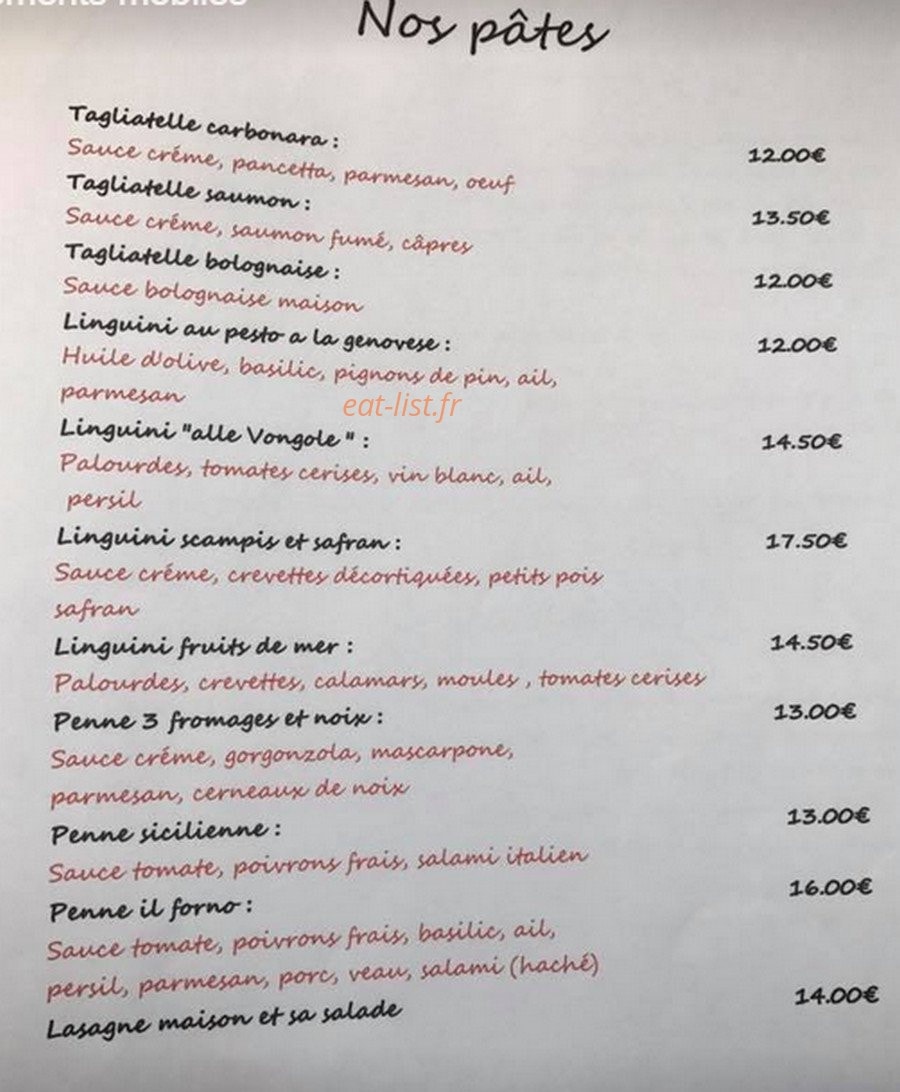 Nos pâtes
Tagliatelle carbonara :
Sauce créme, pancetta, parmesan, oeuf 12.00€
Tagliatelle saumon :
Sauce créme, saumon fumé, câpres 13.50€
Tagliatelle bolognaise : 12.00€
Sauce bolognaise maison
Linguini au pesto a la genovese : 12.00€
Huile d'olive, basilic, pignons de pin, ail,
parmesan
eat-list.fr
Linguini "alle Vongole " : 14.50€
Palourdes, tomates cerises, vin blanc, ail,
persil
Linguini scampis et safran : 17.50€
Sauce créme, crevettes décortiquées, petits pois
safran
Linguini fruits de mer : 14.50€
Palourdes, crevettes, calamars, moules , tomates cerises
Penne 3 fromages et noix : 13.00€
Sauce créme, gorgonzola, mascarpone,
parmesan, cerneaux de noix
Penne sicilienne : 13.00€
Sauce tomate, poivrons frais, salami italien
Penne il forno : 16.00€
Sauce tomate, poivrons frais, basilic, ail,
persil, parmesan, porc, veau, salami (haché)
Lasagne maison et sa salade 14.00€